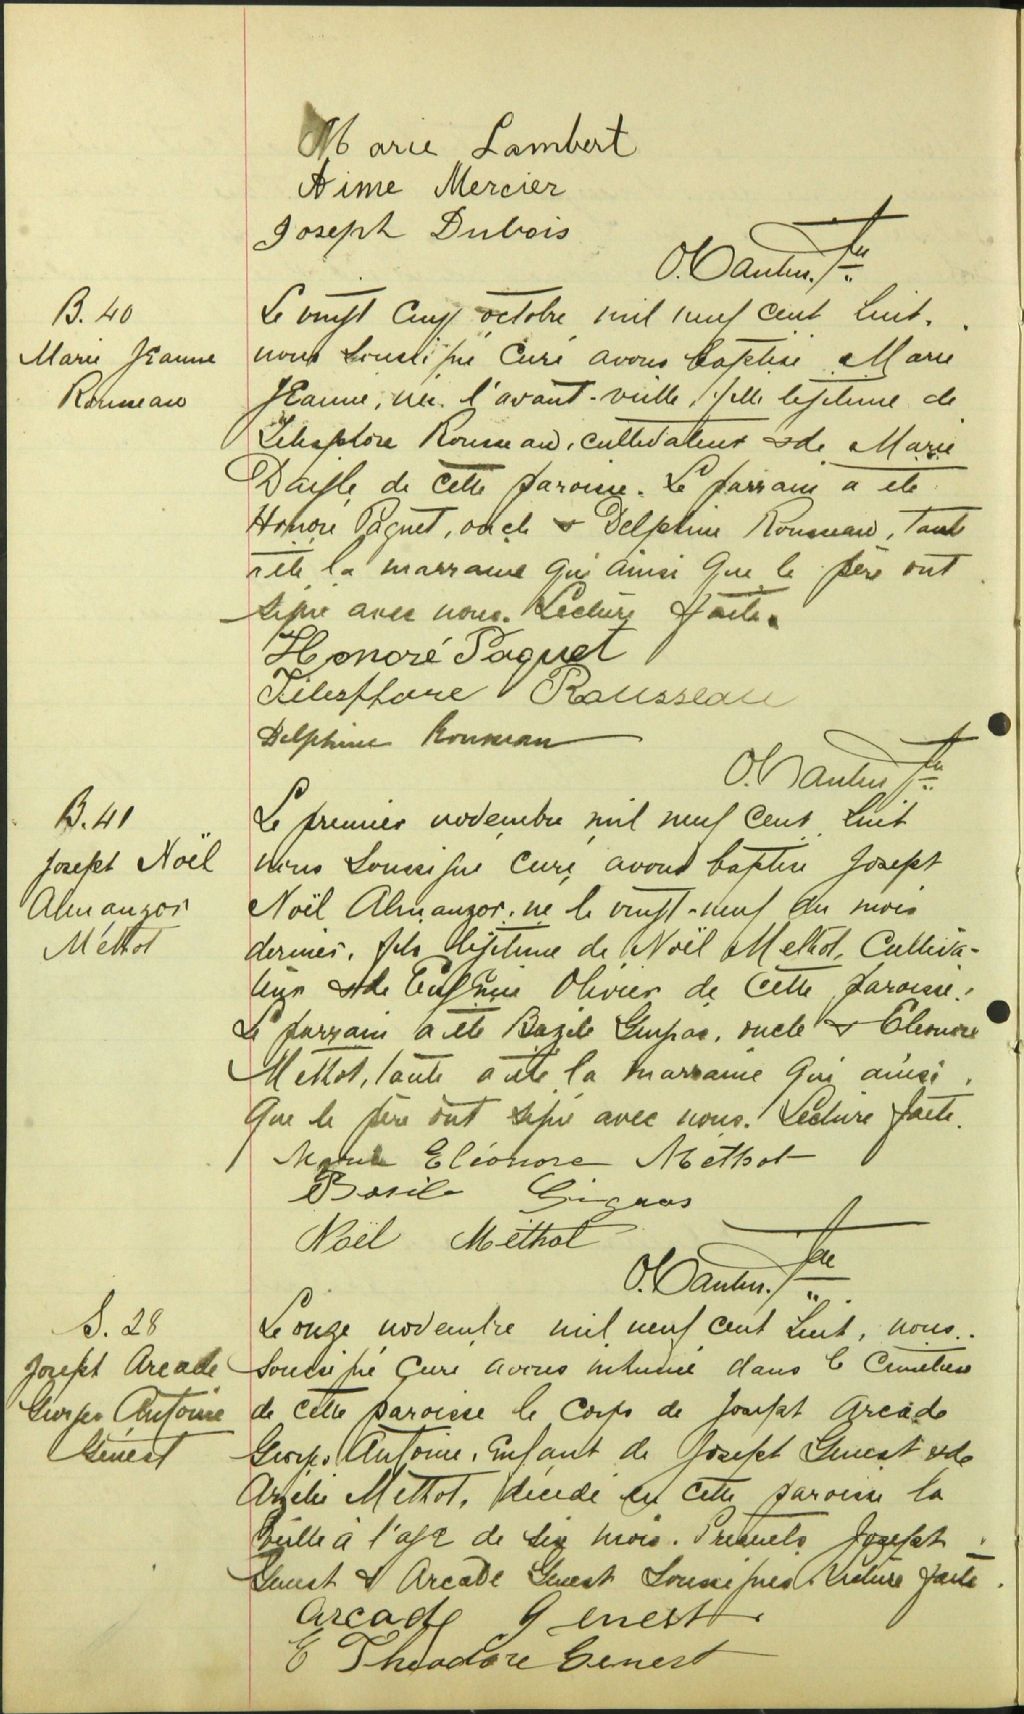 Marie Lambert
Aime Mercier
Joseph Dubois
O. Cantin. Ptre
B. 40
Marie Jeanne
Rousseau
Le vingt cinq octobre mil neuf cent huit,
nous soussigné curé avons baptisé Marie
Jeanne, née l'avant-veille, fille légitime de
Telesphore Rousseau, cultivateur & de Marie
Daigle de cette paroisse. Le parrain a été
Honoré Paquet, oncle & Delphine Rousseau, tante
a été la marraine qui ainsi que le père ont
signé avec nous. Lecture faite.
Honoré Paquet
Télesphore Rousseau
Delphine Rousseau
O. Cantin Ptre
B. 41
Joseph Noël
Almanzor
Méthot
Le premier novembre mil neuf cent huit
nous soussigné curé, avons baptisé Joseph
Noël Almanzor, né le vingt-neuf du mois
dernier, fils légitime de Noël Methot, cultiva-
teur & de Eugénie Olivier de cette paroisse.
Le parrain a été Bazile Gingras, oncle & Eléonore
Methot, tante a été la marraine qui ainsi
que le père ont signé avec nous. Lecture faite.
Eléonore Méthot
Basile Gingras
Noël Méthot
O. Cantin. Ptre
S. 28
Joseph Arcade
Georges Antoine
Genest
Le onze novembre mil neuf cent huit, nous
soussigné curé avons inhumé dans le cimetière
de cette paroisse le corps de Joseph Arcade
Georges Antoine, enfant de Joseph Genest & de
Azélie Methot, décédé en cette paroisse la
veille à l'age de six mois. Présents Joseph
Genest & Arcade Genest soussignés. Lecture faite.
Arcade Genest
E Theodore Genest